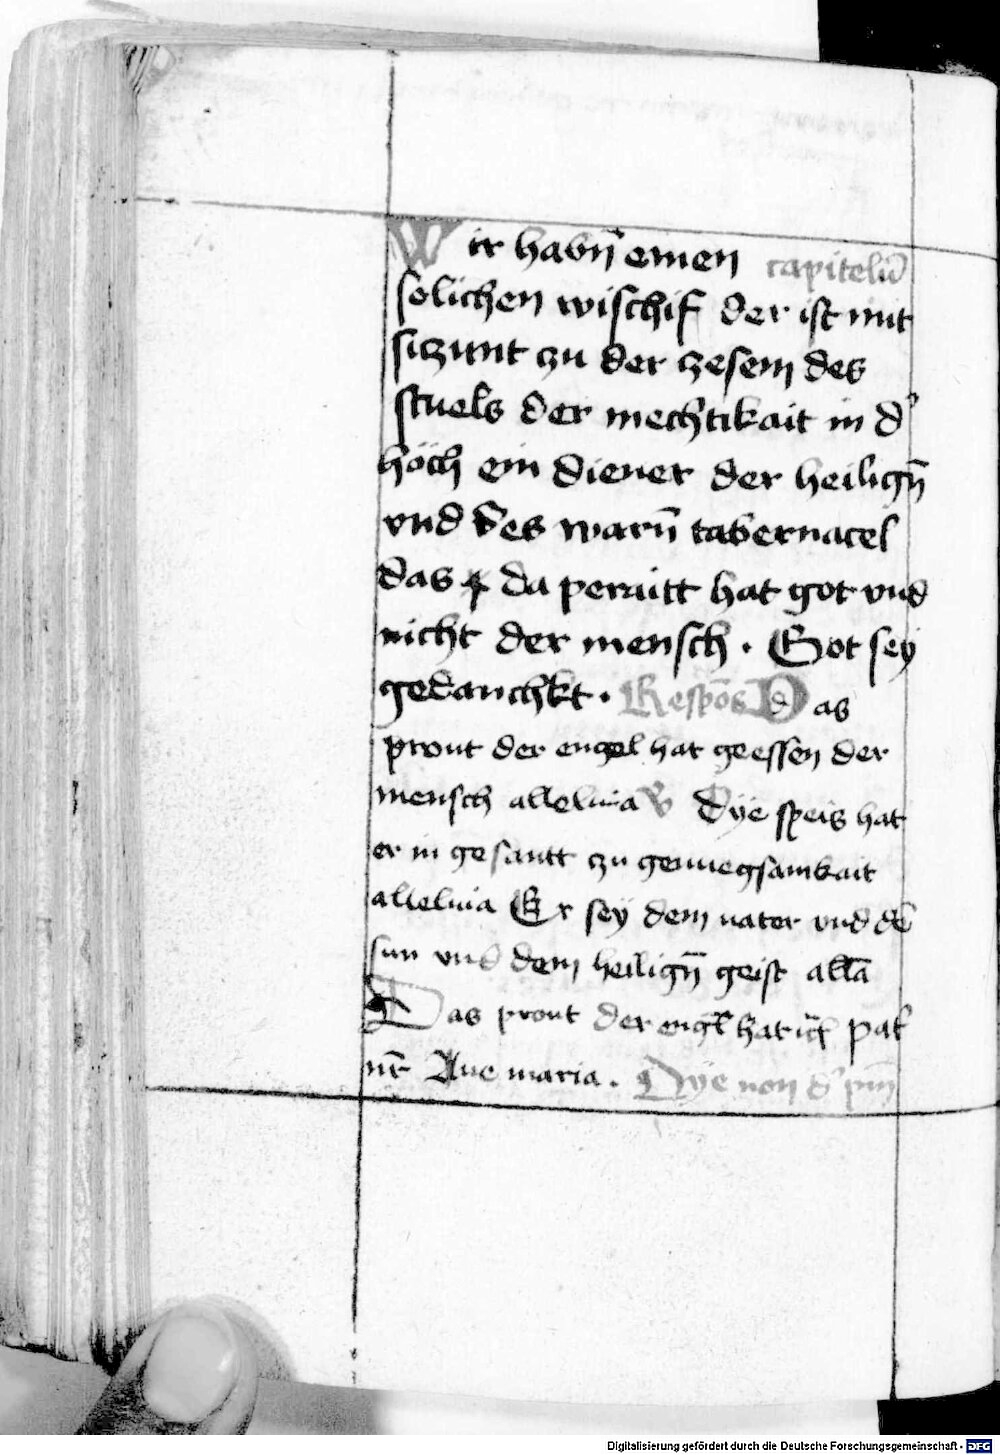 Wir habn̄ einen capitelū
solichen wischif der ist mit
siczunt zu der zesem des
stuels der mechtikait in d'
höch ein diener der heilign̄
vnd des warn̄ tabernacel
das da peraitt hat got vnd
nicht der mensch. Got sey
gedanchkt. Respōs Das
prout der engel hat geessen der
mensch alleluia V Dÿe speis hat
er in gesantt zu genuegsamkait
alleluia Er sey dem uater vnd dē
sun vnd dem heilign̄ geist allā
Das prout der engl̄ hat pat'
nr̄ Aue maria. Dÿe non d'
Digitalisierung gefördert durch die Deutsche Forschungsgemeinschaft - DFG